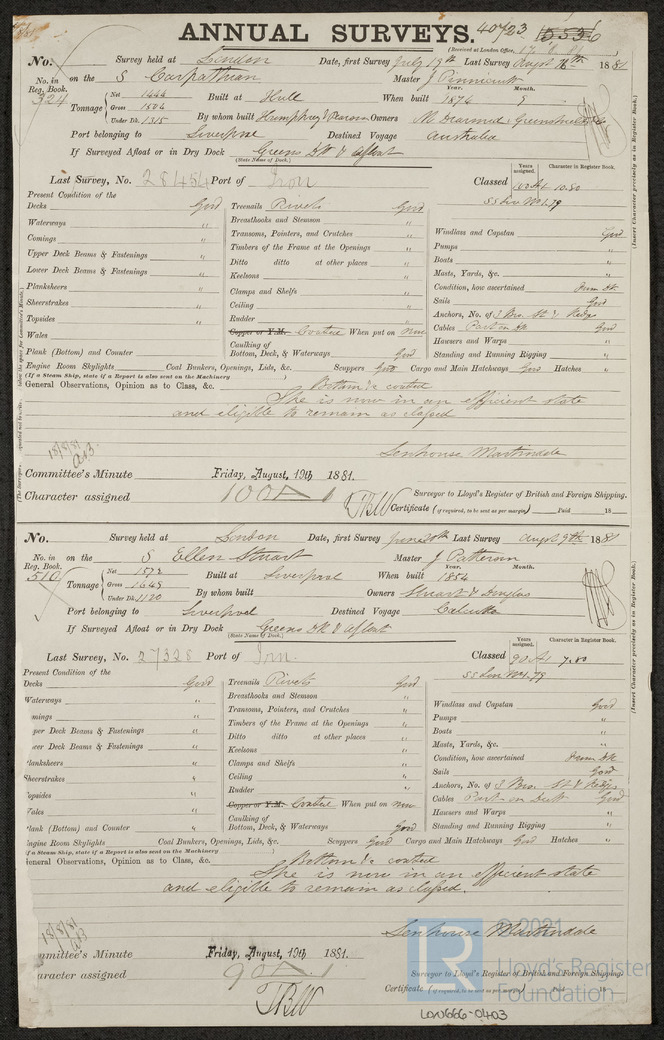 ANNUAL SURVEYS. 40723
(Received at London Office,
No. Survey held at London Date, first Survey July 19th Last Survey Augst 1881
No. in Reg. Book. 324 on the S Carpathian Master J Pinnicutt
Tonnage Net 1444 Gross 1504 Under Dk. 1315 Built at Hull When built Year. 1874 Month. 9
By whom built Humphrey & Pearson Owners McDiarmid Greenshields & Co
Port belonging to Liverpool Destined Voyage Australia
If Surveyed Afloat or in Dry Dock Greens Dk & afloat
(State Name of Dock.)
Last Survey, No. 28454 Port of Iron Classed Years assigned. Character in Register Book. 100 A1 10.80
SS Lon No1.79
Present Condition of the
Decks Good Treenails Rivets Good
Waterways " Breasthooks and Stemson "
Comings " Transoms, Pointers, and Crutches " Windlass and Capstan Good
Upper Deck Beams & Fastenings " Timbers of the Frame at the Openings " Pumps "
Lower Deck Beams & Fastenings " Ditto ditto at other places " Boats "
Planksheers " Keelsons " Masts, Yards, &c. "
Sheerstrakes " Clamps and Shelfs " Condition, how ascertained From Dk
Topsides " Ceiling " Sails Good
Wales " Rudder " Anchors, No. of 3 Bro. St & Kedges
Copper or Y.M. Coated When put on new Cables Part on Dk Good
Plank (Bottom) and Counter " Caulking of Bottom, Deck, & Waterways Good Hawsers and Warps "
Standing and Running Rigging "
Engine Room Skylights Coal Bunkers, Openings, Lids, &c. Scuppers Good Cargo and Main Hatchways Good Hatches "
(If a Steam Ship, state if a Report is also sent on the Machinery )
General Observations, Opinion as to Class, &c. Bottom &c coated
She is now in an efficient state
and eligible to remain as classed
18/8/81
Senhouse Martindale
Committee's Minute Friday, August, 19th 1881.
Surveyor to Lloyd's Register of British and Foreign Shipping.
Character assigned 100 A 1
Certificate (if required, to be sent as per margin) Paid 18
(Insert Character precisely as in Register Book.)
No. Survey held at London Date, first Survey June 30th Last Survey Augst 9th 1881
No. in Reg. Book. 510 on the S Ellen Stuart Master J Patterson
Tonnage Net 1572 Gross 1649 Under Dk. 1120 Built at Liverpool When built Year. 1854 Month.
By whom built Owners Stuart & Douglas
Port belonging to Liverpool Destined Voyage Calcutta
If Surveyed Afloat or in Dry Dock Greens Dk & afloat
(State Name of Dock.)
Last Survey, No. 27328 Port of Irn. Classed Years assigned. Character in Register Book. 90 A1 7.80
SS Lon No1.79
Present Condition of the
Decks Good Treenails Rivets Good
Waterways " Breasthooks and Stemson "
mings " Transoms, Pointers, and Crutches " Windlass and Capstan Good
per Deck Beams & Fastenings " Timbers of the Frame at the Openings " Pumps "
wer Deck Beams & Fastenings " Ditto ditto at other places " Boats "
lanksheers " Keelsons " Masts, Yards, &c. "
Sheerstrakes " Clamps and Shelfs " Condition, how ascertained From Dk
opsides " Ceiling " Sails Good
ales " Rudder " Anchors, No. of 3 Bro. St & Kedges
Copper or Y.M. Coated When put on new Cables Part on Deck Good
lank (Bottom) and Counter " Caulking of Bottom, Deck, & Waterways Good Hawsers and Warps "
Standing and Running Rigging "
ngine Room Skylights Coal Bunkers, Openings, Lids, &c. Scuppers Good Cargo and Main Hatchways Good Hatches "
f a Steam Ship, state if a Report is also sent on the Machinery )
eneral Observations, Opinion as to Class, &c. Bottom &c coated
She is now in an efficient state
and eligible to remain as classed.
18/8/81
Senhouse Martindale
mmittee's Minute Friday, August, 19th 1881.
Surveyor to Lloyd's Register of British and Foreign Shipping
aracter assigned 90 A 1
Certificate (if required, to be sent as per margin) Paid 18
(Insert Character precisely as in Register Book.)
© 2021
LR Lloyd's Register
Foundation
LON666-0403